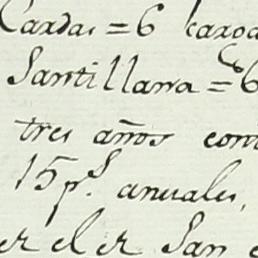 Cardas = 6 carga
Santillana = 6
tres años con
15 p.s anuales,
er el er San